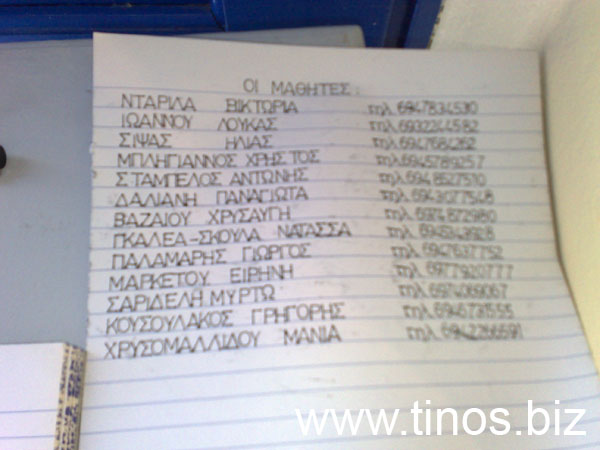 ΟΙ ΜΑΘΗΤΕΣ:
ΝΤΑΡΙΛΑ ΒΙΚΤΩΡΙΑ τηλ. 6947834530
ΙΩΑΝΝΟΥ ΛΟΥΚΑΣ τηλ. 6932244582
ΣΙΨΑΣ ΗΛΙΑΣ τηλ. 6947684262
ΜΠΛΗΓΙΑΝΝΟΣ ΧΡΗΣΤΟΣ τηλ. 6945789257
ΣΤΑΜΠΕΛΟΣ ΑΝΤΩΝΗΣ τηλ. 6948527570
ΔΑΛΙΑΝΗ ΠΑΝΑΓΙΩΤΑ τηλ. 6943077548
ΒΑΖΑΙΟΥ ΧΡΥΣΑΥΓΗ τηλ. 6974872980
ΓΚΑΛΕΑ-ΣΚΟΥΛΑ ΝΑΤΑΣΣΑ τηλ.
ΠΑΛΑΜΑΡΗΣ ΓΙΩΡΓΟΣ τηλ. 6947637752
ΜΑΡΚΕΤΟΥ ΕΙΡΗΝΗ τηλ. 6977920777
ΣΑΡΙΔΕΛΗ ΜΥΡΤΩ τηλ. 6974069067
ΚΟΥΣΟΥΛΑΚΟΣ ΓΡΗΓΟΡΗΣ τηλ.
ΧΡΥΣΟΜΑΛΛΙΔΟΥ ΜΑΝΙΑ τηλ. 6942266591
www.tinos.biz